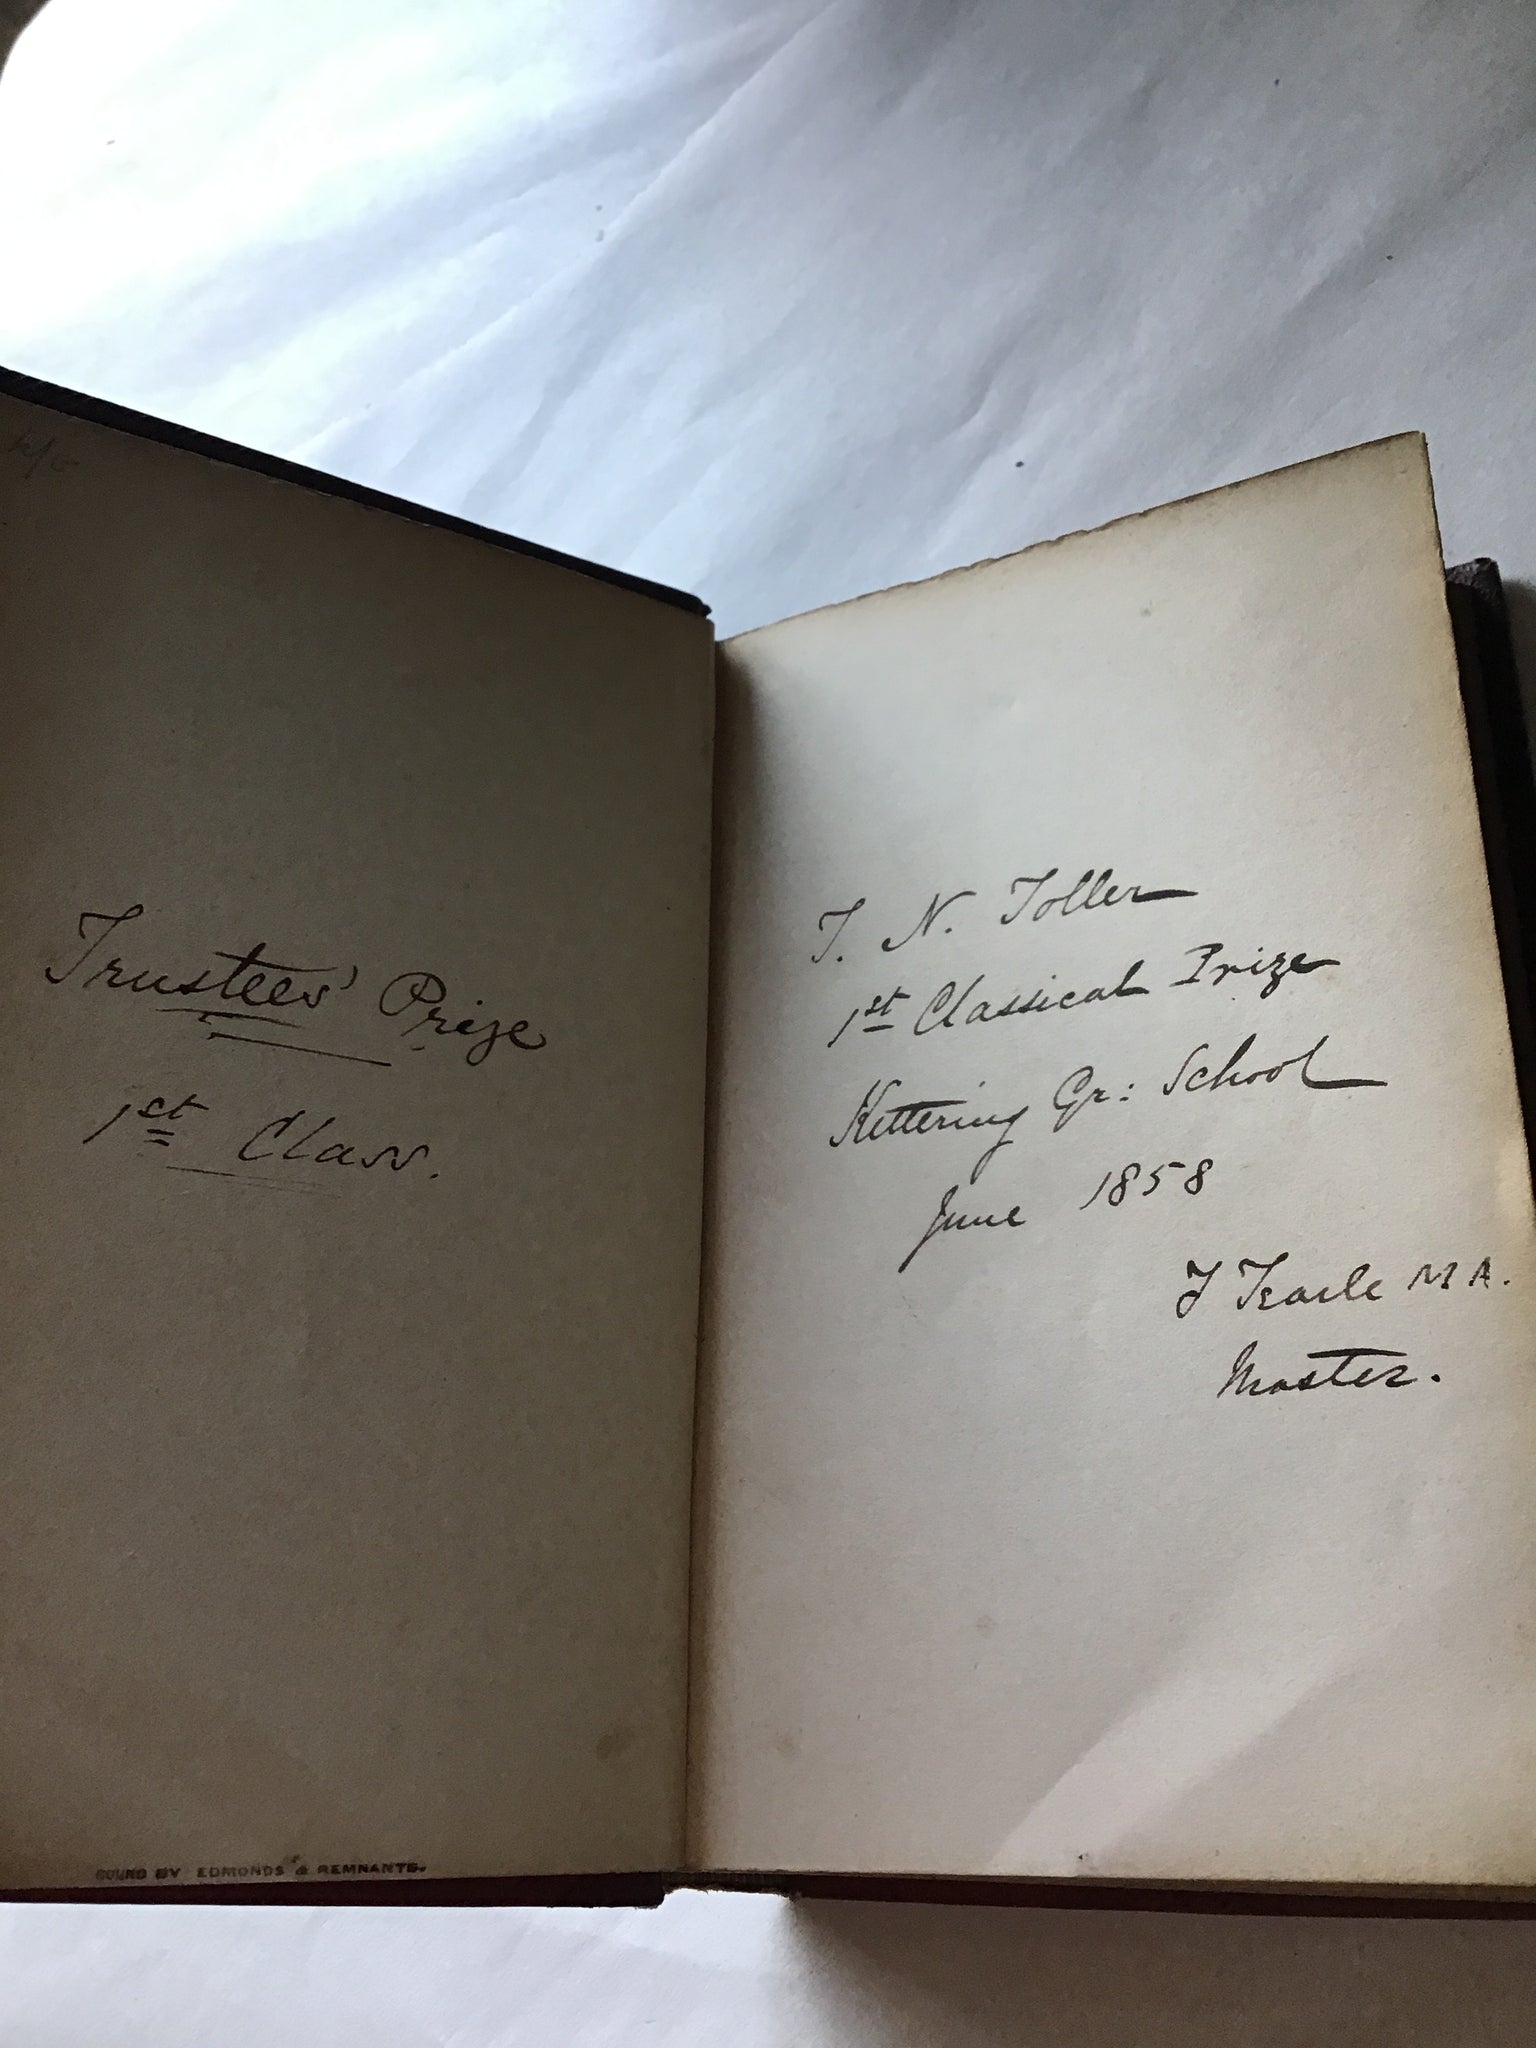 Trustees' Prize
1st Class.
BOUND BY EDMONDS & REMNANTS.
T. N. Toller
1st Classical Prize
Kettering Gr: School
June 1858
M A.
Master.